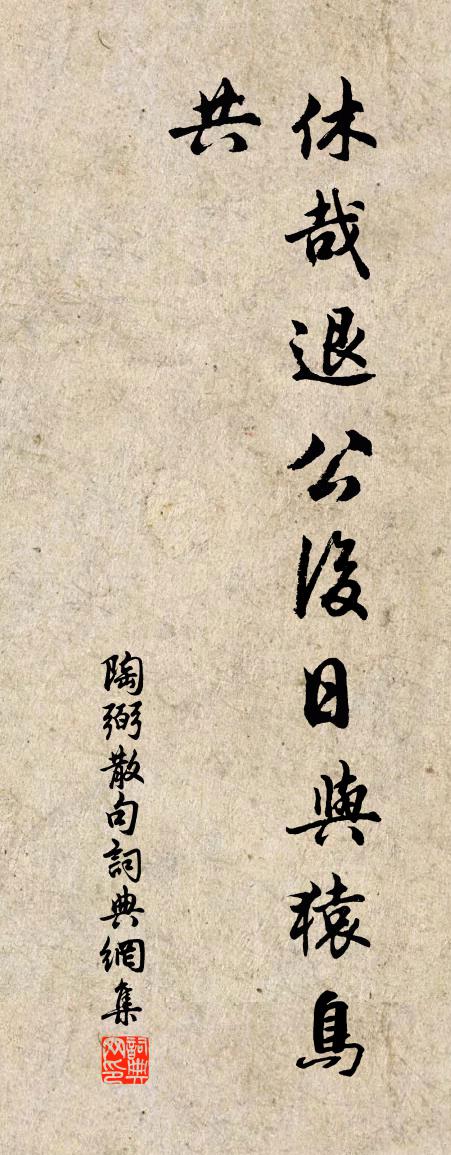 休哉退公後日與猿鳥
共
陶弼散句詞典網集
詞典网印